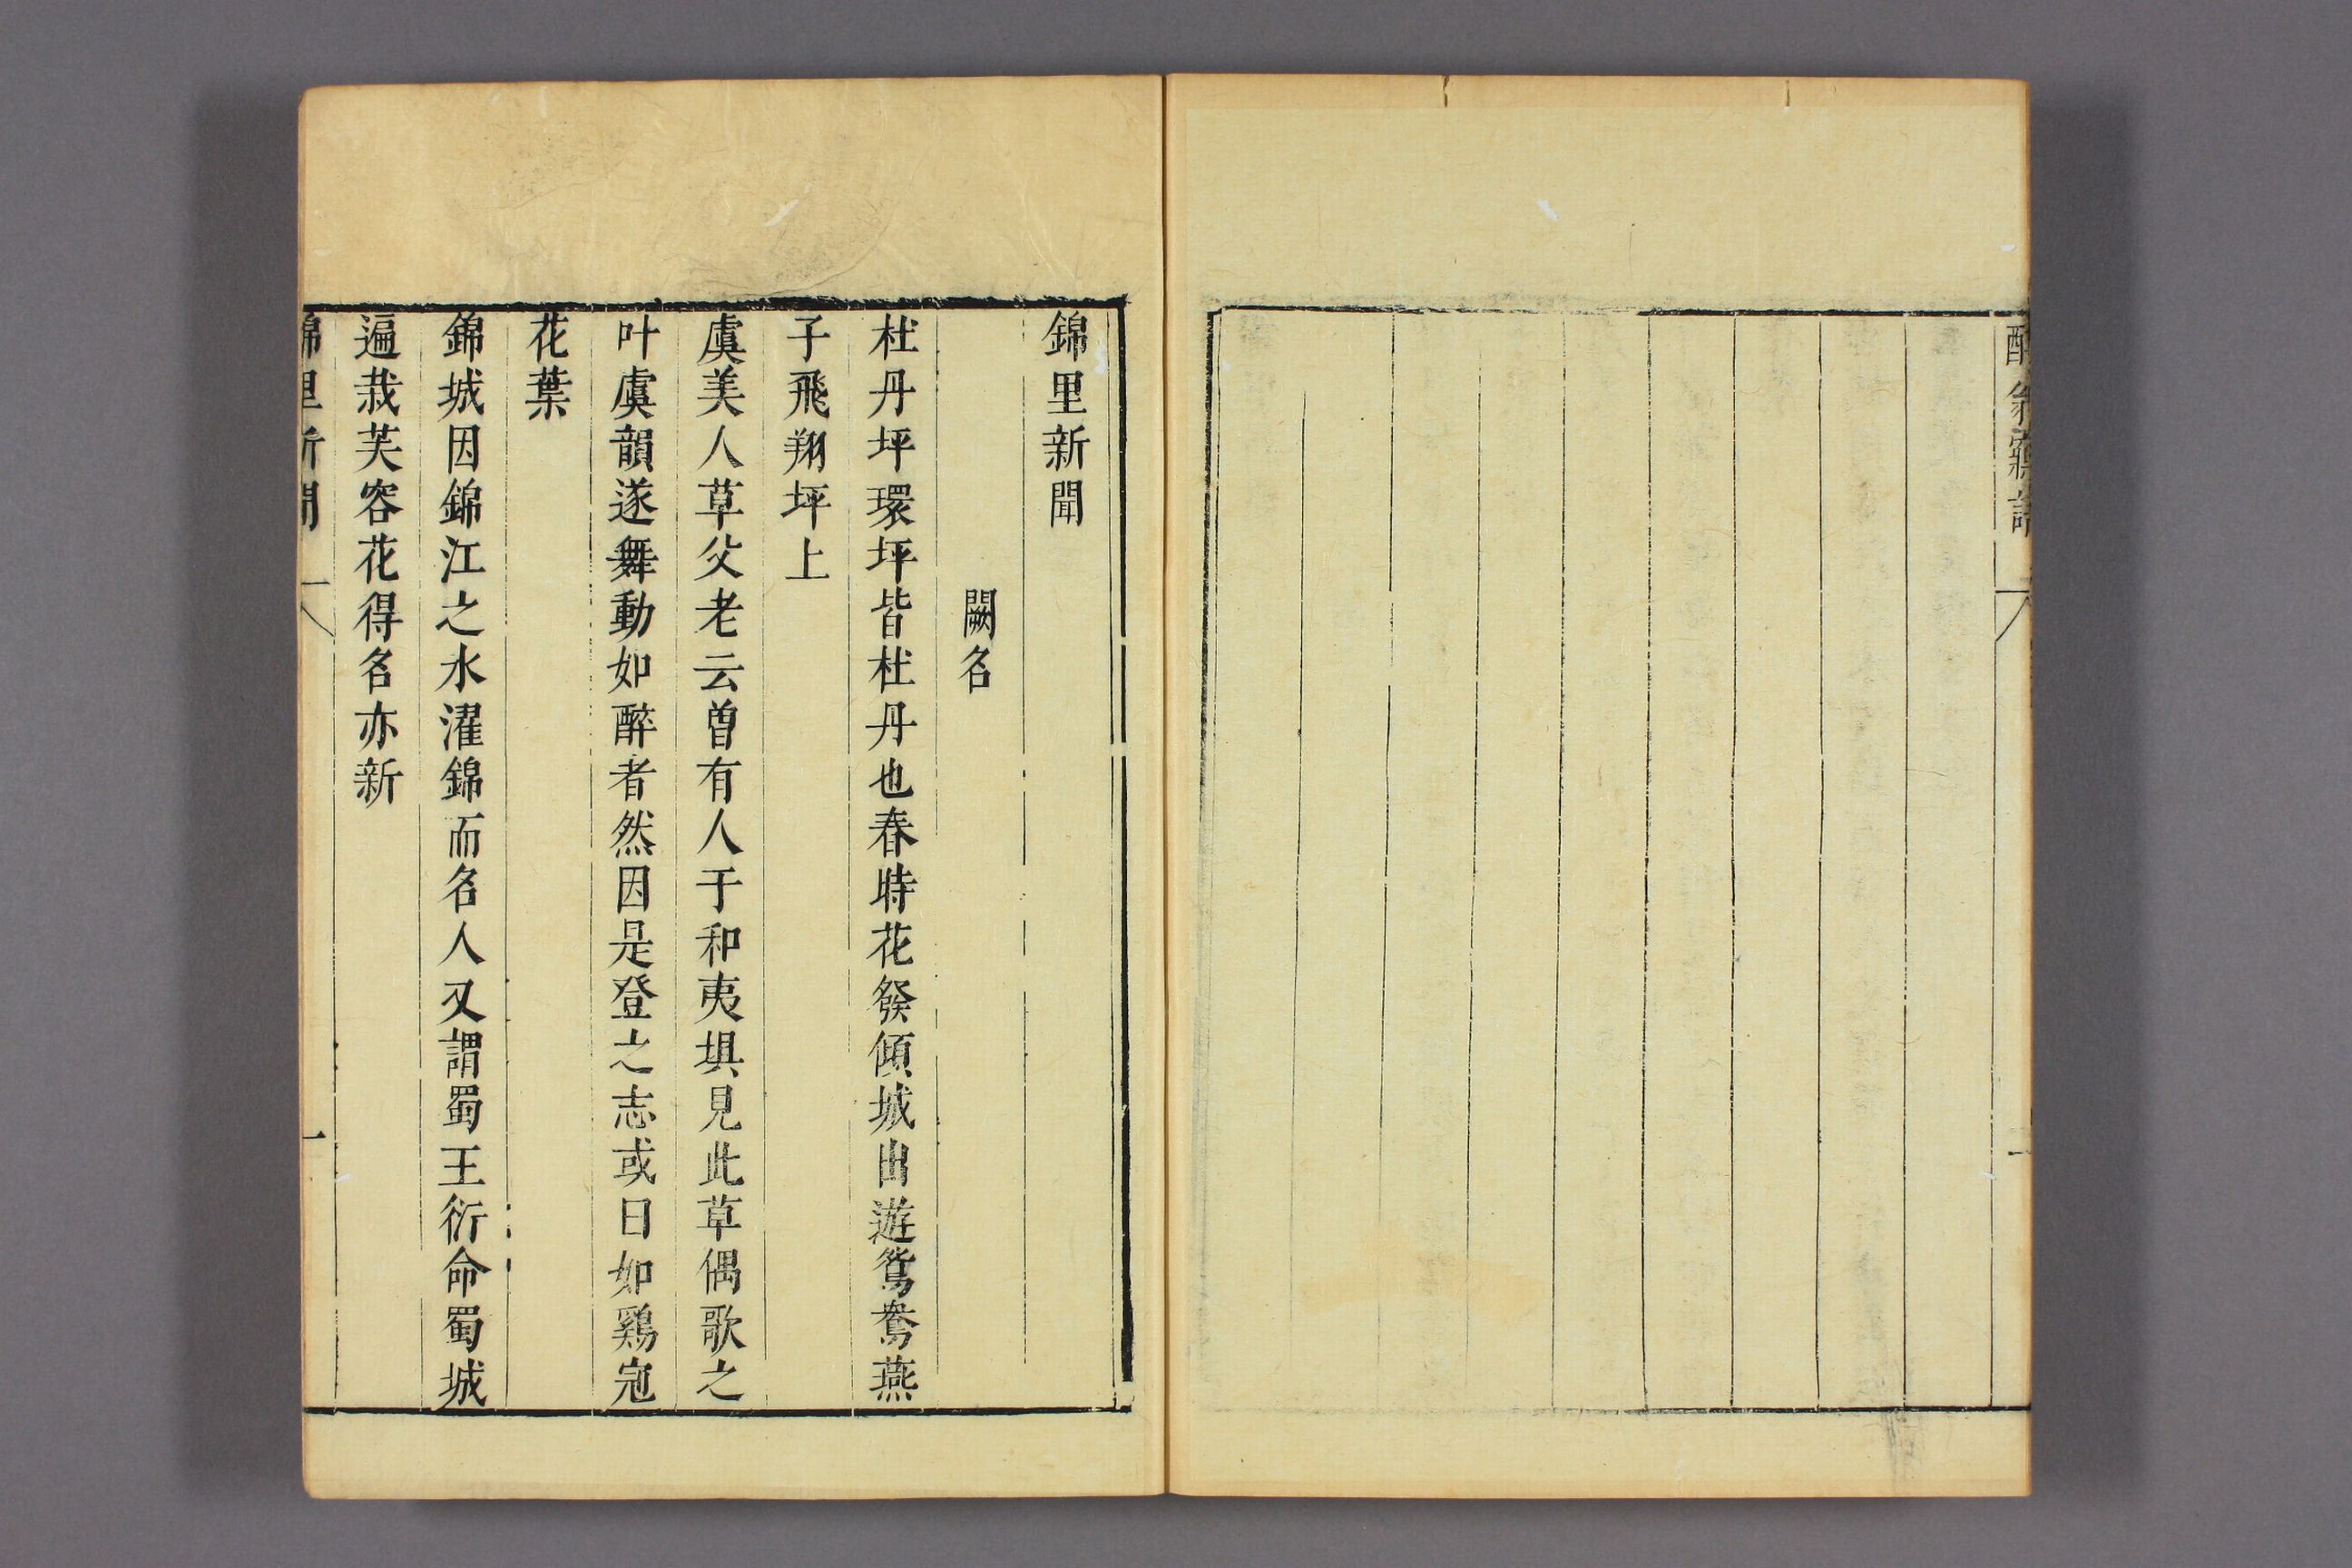 醉翁寱語
一
錦里新聞
闕名
杜丹坪環坪皆杜丹也春時花發傾城出遊鴛鴦燕
子飛翔坪上
虞美人草父老云曾有人于和夷埧見此草偶歌之
叶虞韻遂舞動如醉者然因是登之志或曰如鷄冠
花葉
錦城因錦江之水濯錦而名人又謂蜀王衍命蜀城
遍栽芙容花得名亦新
錦里新聞
一